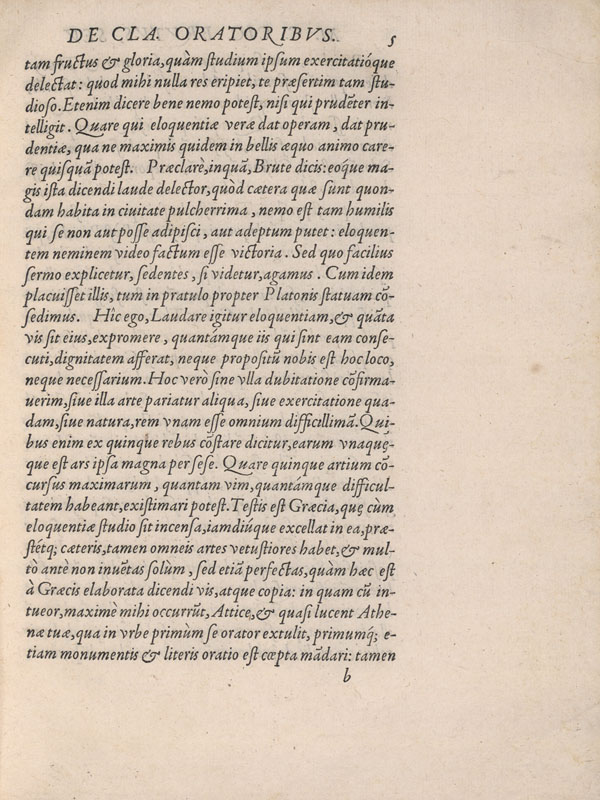 DE CLA. ORATORIBVS. 5
tam fructus & gloria,quàm studium ipsum exercitatióque
delectat: quod mihi nulla res eripiet, te præsertim tam stu-
dioso.Etenim dicere bene nemo potest, nisi qui prudēter in-
telligit. Quare qui eloquentiæ veræ dat operam, dat pru-
dentiæ, qua ne maximis quidem in bellis æquo animo care-
re quisquā potest. Præclarè,inquā, Brute dicis:eóque ma-
gis ista dicendi laude delector,quòd cætera quæ sunt quon-
dam habita in ciuitate pulcherrima, nemo est tam humilis
qui se non aut posse adipisci, aut adeptum putet: eloquen-
tem neminem video factum esse victoria. Sed quo facilius
sermo explicetur, sedentes, si videtur,agamus. Cum idem
placuisset illis, tum in pratulo propter Platonis statuam cō-
sedimus. Hîc ego,Laudare igitur eloquentiam,& quāta
vis sit eius,expromere, quantámque iis qui sint eam conse-
cuti,dignitatem afferat, neque propositū nobis est hoc loco,
neque necessarium.Hoc verò sine vlla dubitatione cōfirma-
uerim,siue illa arte pariatur aliqua, siue exercitatione qua-
dam,siue natura,rem vnam esse omnium difficillimā.Qui-
bus enim ex quinque rebus cōstare dicitur,earum vnaquę-
que est ars ipsa magna per sese. Quare quinque artium cō-
cursus maximarum, quantam vim,quantámque difficul-
tatem habeant,existimari potest.Testis est Græcia,quę cùm
eloquentiæ studio sit incensa,iamdiúque excellat in ea,præ-
stétq; cæteris,tamen omneis artes vetustiores habet,& mul-
tò antè non inuētas solùm, sed etiā perfectas,quàm hæc est
à Græcis elaborata dicendi vis,atque copia: in quam cū in-
tueor,maximè mihi occurrūt, Attice,& quasi lucent Athe-
næ tuæ,qua in vrbe primùm se orator extulit, primumq́; e-
tiam monumentis & literis oratio est cœpta mādari: tamen
b